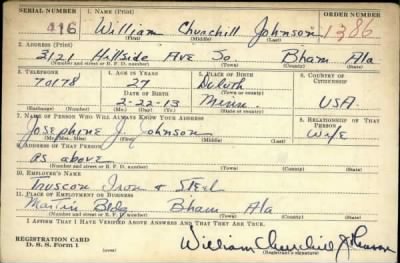 SERIAL NUMBER 1. NAME (Print) ORDER NUMBER
416 William Churchill Johnson 1386
(First) (Middle) (Last)
2. ADDRESS (Print)
3121 Hillside Ave So. Bham Ala
(Number and street or R. F. D. number) (Town) (County) (State)
3. TELEPHONE 4. AGE IN YEARS 5. PLACE OF BIRTH 6. COUNTRY OF CITIZENSHIP
70178 27 Duluth
DATE OF BIRTH (Town or county)
2-22-13 Minn. USA
(Exchange) (Number) (Mo.) (Day) (Yr.) (State or country)
7. NAME OF PERSON WHO WILL ALWAYS KNOW YOUR ADDRESS 8. RELATIONSHIP OF THAT PERSON
Josephine J Johnson Wife
(Mr., Mrs., Miss) (First) (Middle) (Last)
9. ADDRESS OF THAT PERSON
as above
(Number and street or R. F. D. number) (Town) (County) (State)
10. EMPLOYER'S NAME
Truscon Iron & Steel
11. PLACE OF EMPLOYMENT OR BUSINESS
Martin Bldg Bham Ala
(Number and street or R. F. D. number) (Town) (County) (State)
I AFFIRM THAT I HAVE VERIFIED ABOVE ANSWERS AND THAT THEY ARE TRUE.
REGISTRATION CARD
D. S. S. Form 1 William Churchill Johnson
(Registrant's signature)